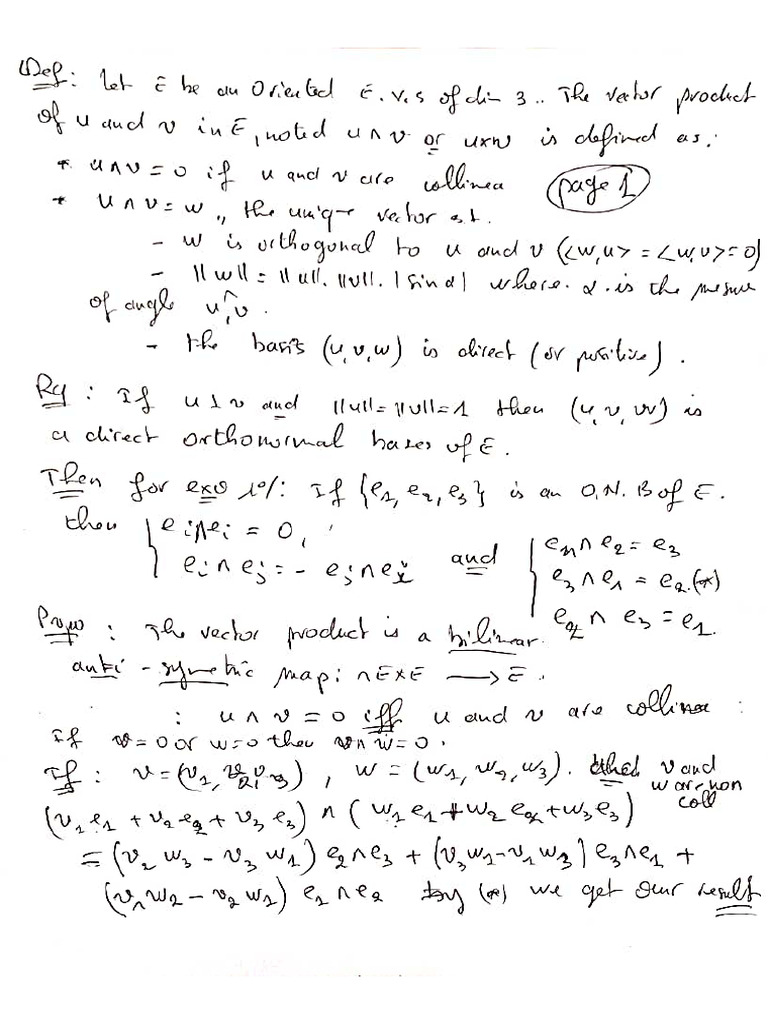 Def: Let E be an Oriented E.v.s of dim 3.. The vector product
of u and v in E, noted u∧v or u×v is defined as:
* u∧v = 0 if u and v are collinea
page 1
* u∧v = w, the unique vector s.t.
- w is orthogonal to u and v (<w,u> = <w,v> = 0)
- ||w|| = ||u||. ||v||. |sin α| where α is the mesure
of angle u,v.
- the basis (u,v,w) is direct (or positive).
Rq: If u⊥v and ||u|| = ||v|| = 1 then (u,v,w) is
a direct orthonormal bases of E.
Then for exo 1°/: If {e1, e2, e3} is an O.N.B of E.
then { ei∧ei = 0, ei∧ej = - ej∧ei and { e1∧e2 = e3
e3∧e1 = e2 (*)
e2∧e3 = e1.
Prop: The vector product is a bilinear
anti-symetric map: ∧ E×E ⟶ E.
: u∧v = 0 iff u and v are collinea :
If v=0 or w=0 then v∧w=0.
If: v = (v1, v2, v3), w = (w1, w2, w3). v and
w are non
coll
(v1 e1 + v2 e2 + v3 e3) ∧ (w1 e1 + w2 e2 + w3 e3)
= (v2 w3 - v3 w1) e2∧e3 + (v3 w1 - v1 w3) e3∧e1 +
(v1 w2 - v2 w1) e1∧e2 by (*) we get our result